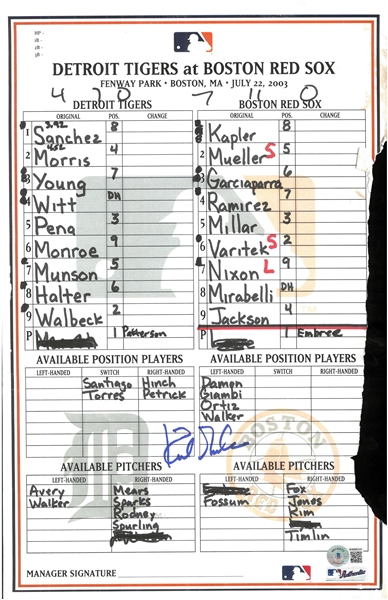 HP -
1B -
2B -
3B -
DETROIT TIGERS at BOSTON RED SOX
FENWAY PARK • BOSTON, MA • JULY 22, 2003
4 7 0 7 11 0
DETROIT TIGERS
ORIGINAL POS. CHANGE
1 Sanchez 8
2 Morris 4
3 Young 7
4 Witt DH
5 Pena 3
6 Monroe 9
7 Munson 5
8 Halter 6
9 Walbeck 2
P 1 Patterson
BOSTON RED SOX
ORIGINAL POS. CHANGE
1 Kapler 8
2 Mueller S 5
3 Garciaparra 6
4 Ramirez 7
5 Millar 3
6 Varitek S 2
7 Nixon L 9
8 Mirabelli DH
9 Jackson 4
P 1 Embree
AVAILABLE POSITION PLAYERS
LEFT-HANDED SWITCH RIGHT-HANDED
Santiago Hinch
Torres Petrick
AVAILABLE POSITION PLAYERS
LEFT-HANDED SWITCH RIGHT-HANDED
Damon
Giambi
Ortiz
Walker
BOSTON
AVAILABLE PITCHERS
LEFT-HANDED RIGHT-HANDED
Avery Mears
Walker Sparks
Rodney
Spurling
AVAILABLE PITCHERS
LEFT-HANDED RIGHT-HANDED
Fossum Fox
Jones
Kim
Timlin
MANAGER SIGNATURE
Authentic